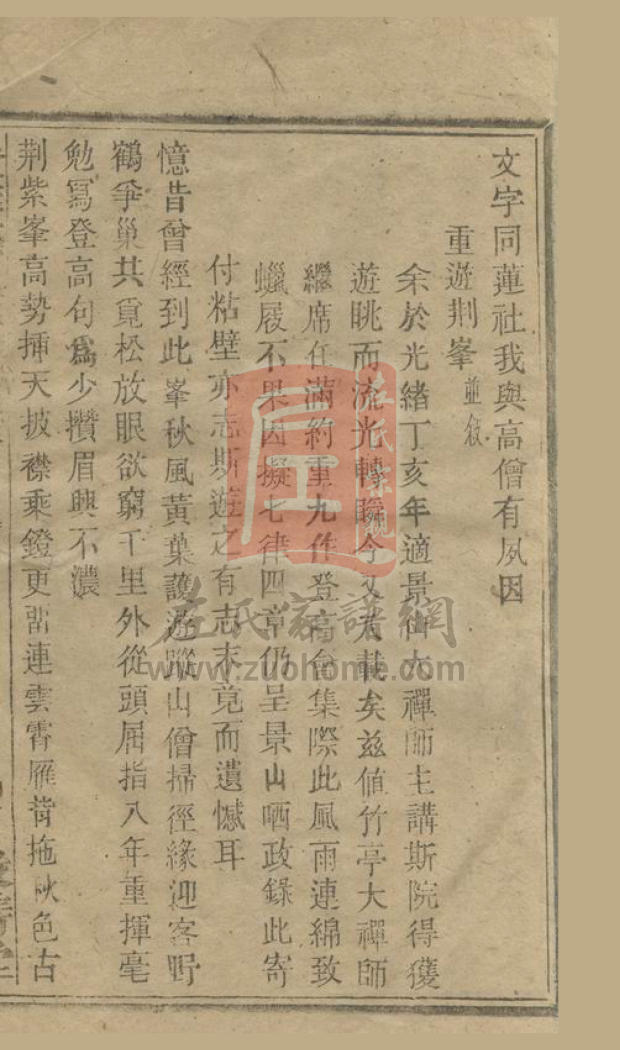 文字同蓮社我與高僧有夙因
重遊荆峯並敍
余於光緒丁亥年適景山大禪師主講斯院得獲
遊眺而流光轉瞬今又八載矣茲值竹亭大禪師
繼席任滿約重九作登高會集際此風雨連綿致
蠟屐不果因擬七律四章仍呈景山哂政錄此寄
付粘壁亦志斯遊之有志未竟而遺憾耳
憶昔曾經到此峯秋風黃葉護遊蹤山僧掃徑緣迎客野
鶴爭巢共覓松放眼欲窮千里外從頭屈指八年重揮毫
勉寫登高句爲少攢眉興不濃
荆紫峯高勢揷天披襟乘鐙更畱連雲霄雁背拖秋色古
左氏族譜網
www.zuohome.com